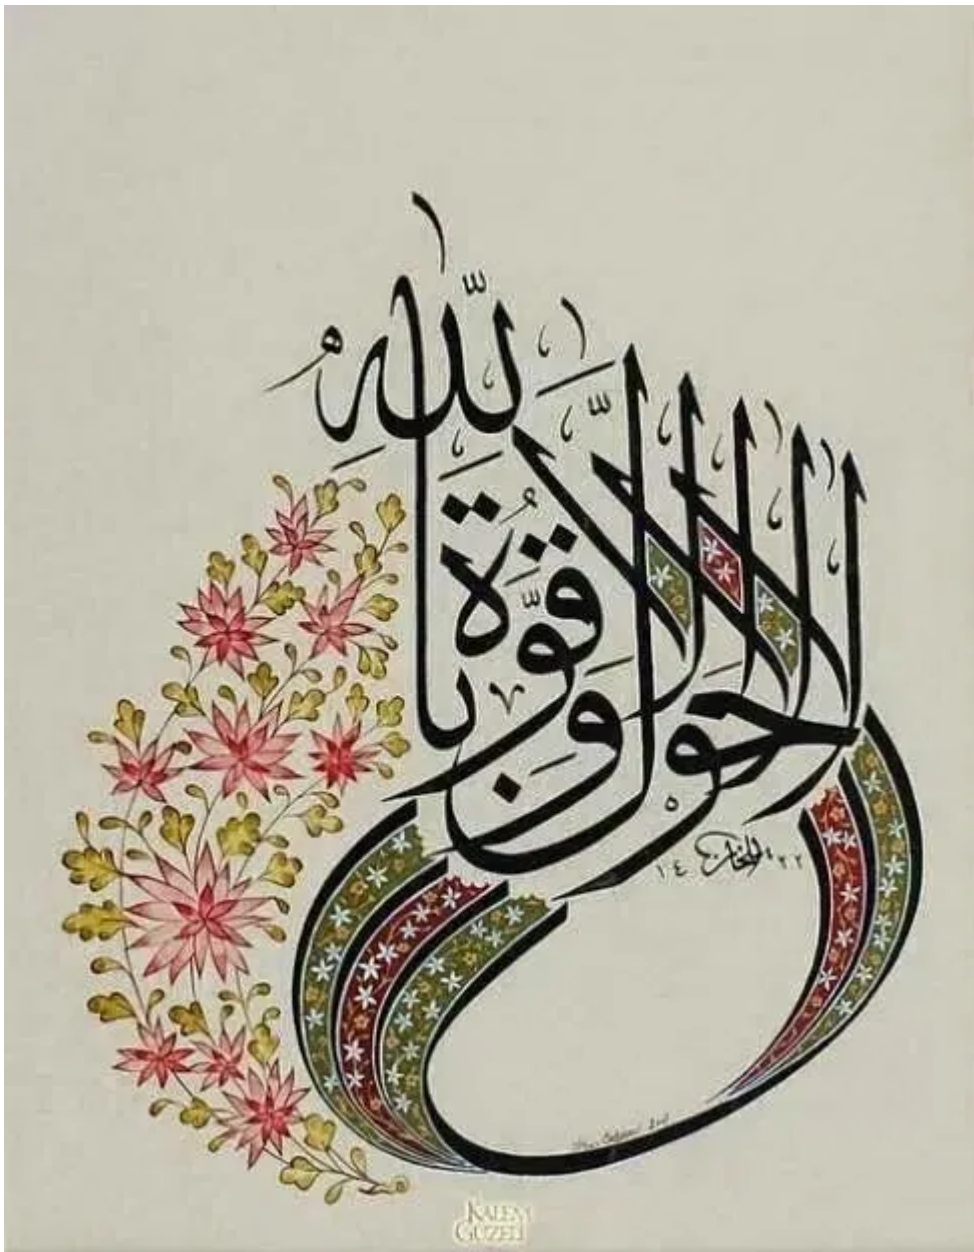 لا حَوْلَ وَلا قُوَّةَ إِلّا بِاللّٰهِ
١٤٢٢
KALEM
GÜZELİ